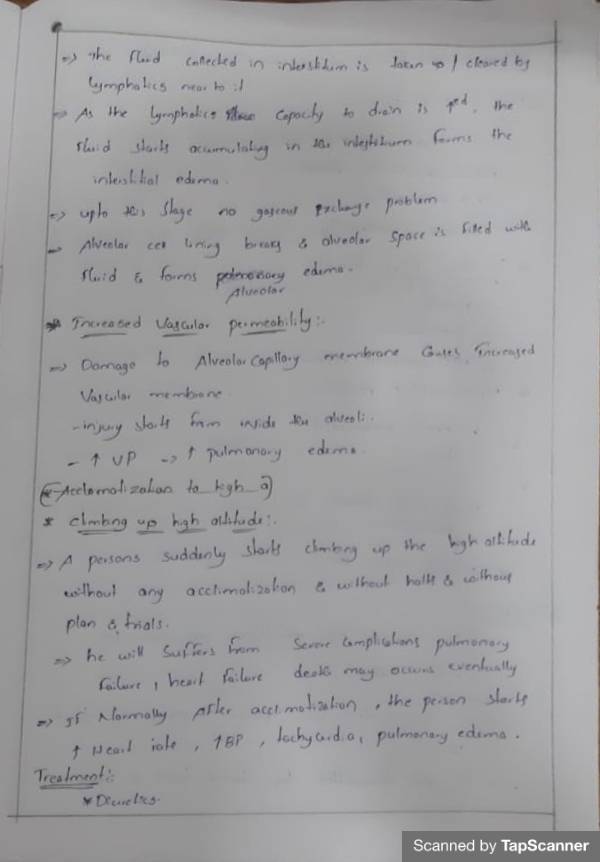 => The fluid collected in interstitum is taken up / cleared by
lymphatics near to it
=> As the lymphatics capacity to drain is ↑ed, the
fluid starts accumulating in the intestitium forms the
interstitial edema.
=> upto this stage no gaseous exchange problem
=> Alveolar cell lining breaks & alveolar space is filled with
fluid & forms pulmonary edema.
Alveolar
* Increased Vascular permeability:-
=> Damage to Alveolar capillary membrane causes Increased
Vascular membrane.
- injury starts from inside the alveoli.
- ↑ VP -> ↑ pulmonary edema.
* Acclamatization to high a
* climbing up high altitude:-
=> A persons suddenly starts climbing up the high altitude
without any acclimatization & without halts & without
plan & trials.
=> he will suffers from severe complications pulmonary
failure, heart failure death may occurs eventually
=> If Normally After acclimatization, the person starts
↑ Heart rate, ↑BP, tachycardia, pulmonary edema.
Treatment:-
* Diuretics.
Scanned by TapScanner